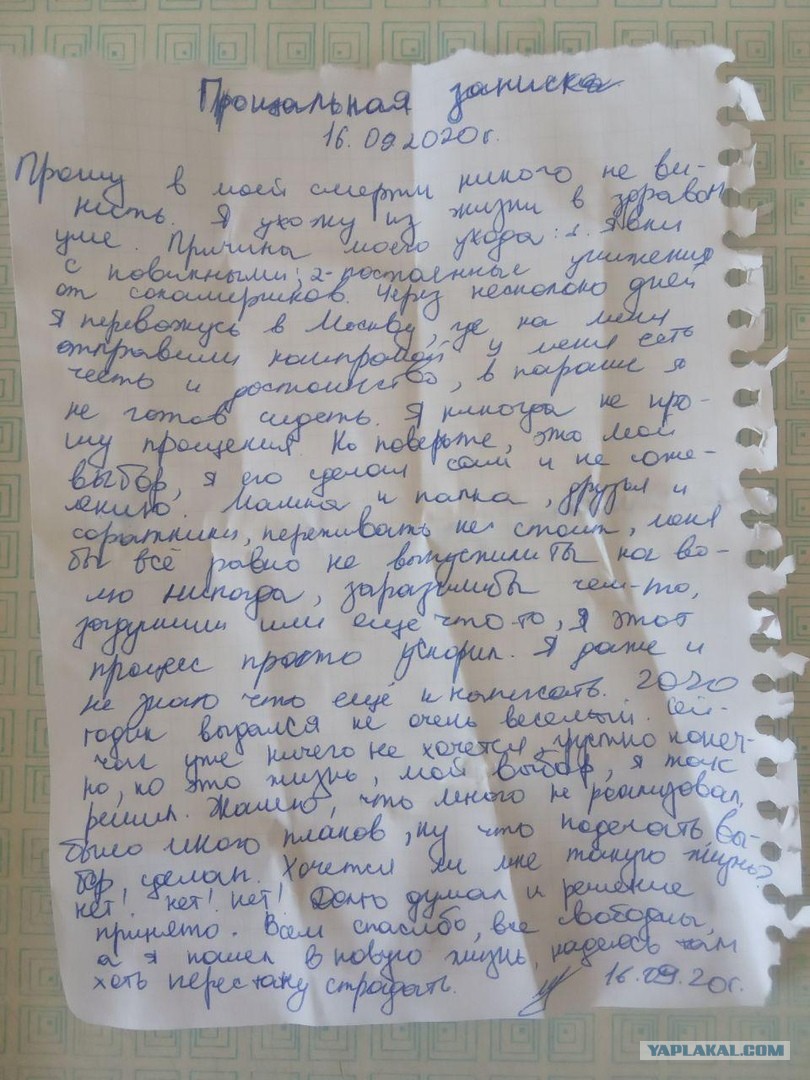 Прощальная записка
16.09.2020г.
Прошу в моей смерти никого не ви-
нить. Я ухожу из жизни в здравом
уме. Причина моего ухода: 1.
с повинными; 2-постоянные унижения
от сокамерников. Через несколько дней
я перевожусь в Москву, где на меня
отправили компромат у меня есть
честь и достоинство, в параше я
не готов сидеть. Я никогда не про-
шу прощения. Но поверьте, это мой
выбор, я его сделал сам и не сожа-
лею. Мамка и папка, друзья и
соратники, переживать не стоит, меня
бы всё равно не выпустили бы на во-
лю никогда, заразили бы чем-то,
задушили или еще что-то, я этот
процес просто ускорил. Я даже и
не знаю что ещё и написать. 2020
годик выдался не очень веселый. Сей-
час уже ничего не хочется, грустно конеч-
но, но это жизнь, мой выбор, я так
решил. Жалею, что много не реализовал,
было много планов, ну что поделать вы-
бор сделан. Хочется ли мне такую жизнь?
нет! нет! нет! Долго думал и решение
принято. Всем спасибо, все свободны,
а я пошел в новую жизнь, надеюсь там
хоть перестану страдать.
16.09.20г.
YAPLAKAL.COM